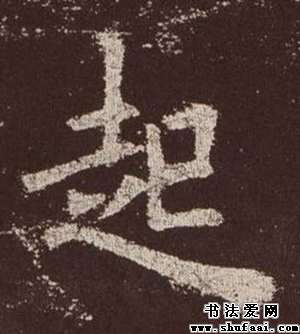 起
书法爱网
www.shufaai.com